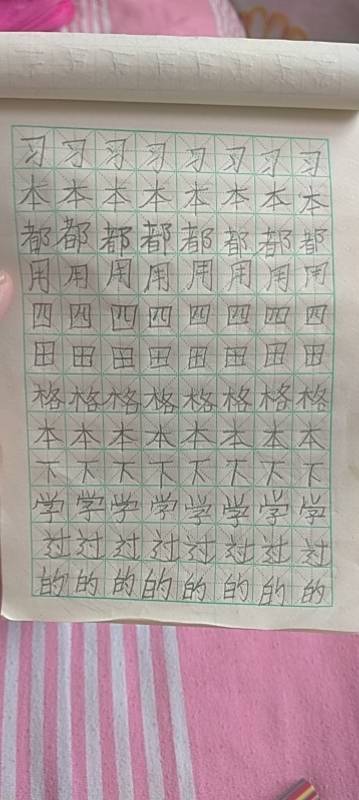 习习习习习习习习
本本本本本本本本
都都都都都都都都
用用用用用用用用
四四四四四四四四
田田田田田田田田
格格格格格格格格
本本本本本本本本
下下下下下下下下
学学学学学学学学
过过过过过过过过
的的的的的的的的